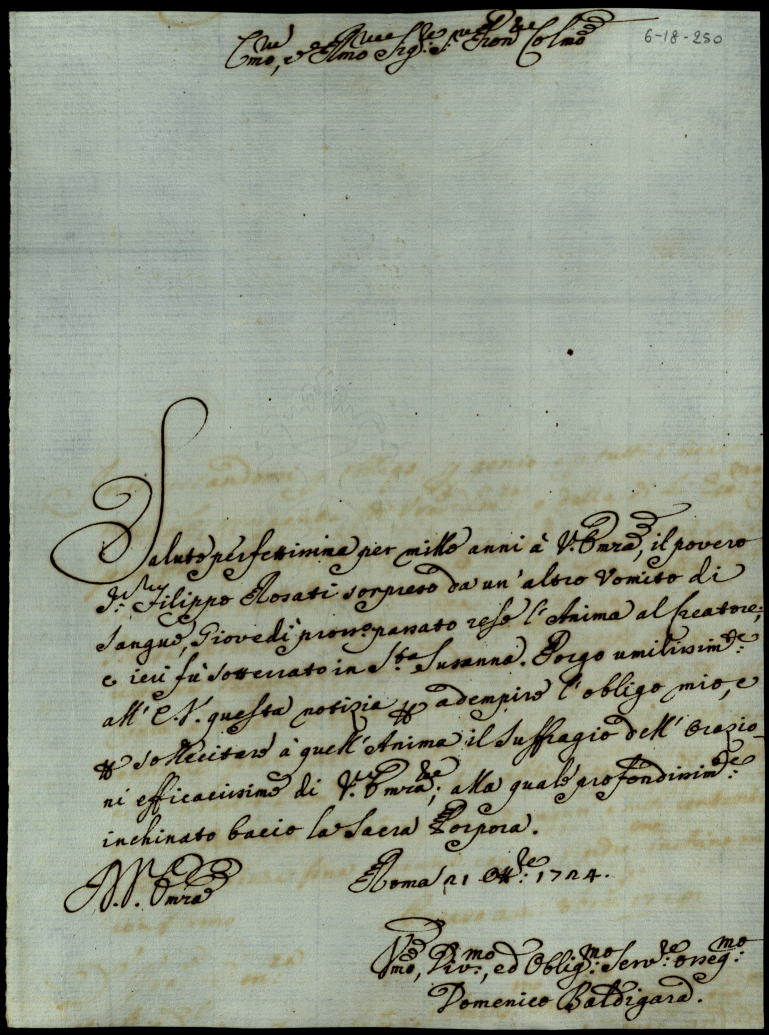 6-18-250
Emo, e Rmo Sig.re Sig.re Pron Colmo
Salute perfettissima per mille anni à V. Emza, il povero
S.r Filippo Rosati sorpreso da un' altro Vomito di
sangue, Giovedì pross.o passato rese l'Anima al Creatore,
e ieri fù sotterrato in S.ta Susanna. Porgo umilissim.te
all' E.V. questa notizia p adempire l'obligo mio, e
p sollecitare à quell' Anima il suffragio dell' Orazio-
ni efficacissime di V. Emza; alla quale profondissim.te
inchinato bacio la Sacra Porpora.
Roma 21 Ott.re 1724.
V. Emza
Vmo, Div.mo, ed Oblig.mo Serv.re osseq.mo
Domenico Baldigara.